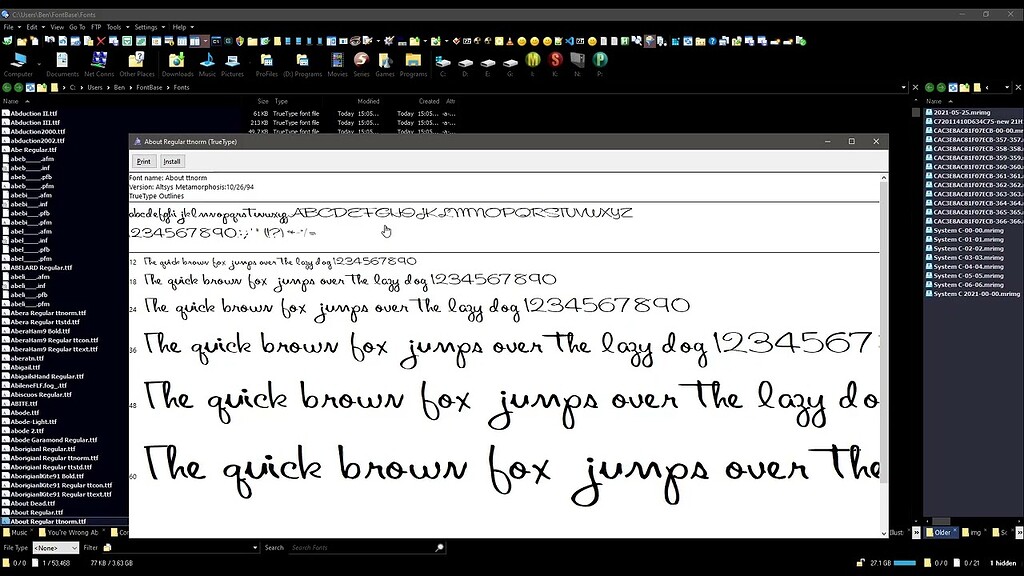 C:\Users\Ben\FontBase\Fonts
File Edit View Go To FTP Tools Settings Help
Computer Documents Net Conns Other Places Downloads Music Pictures ProFiles (D:) Programs Movies Series Games Programs C: D: E: G: I: K: N: P:
C: Users Ben FontBase Fonts
Name Size Type Modified Created Attr Name
Abduction II.ttf 61 KB TrueType font file Today 15:05... Today 15:05... -a-...
Abduction III.ttf 213 KB TrueType font file Today 15:05... Today 15:05... -a-...
Abduction2000.ttf 49.2 KB TrueType font file Today 15:05... Today 15:05... -a-...
abduction2002.ttf
Abe Regular.ttf
abeb____.afm
abeb____.inf
abeb____.pfb
abeb____.pfm
abebi___.afm
abebi___.inf
abebi___.pfb
abebi___.pfm
abel____.afm
abel____.inf
abel____.pfb
abel____.pfm
ABELARD Regular.ttf
abeli___.afm
abeli___.inf
abeli___.pfb
abeli___.pfm
Abera Regular ttnorm.ttf
Abera Regular ttstd.ttf
AberaHam9 Bold.ttf
AberaHam9 Regular ttcon.ttf
AberaHam9 Regular ttext.ttf
aberatn.ttf
Abigail.ttf
AbigailsHand Regular.ttf
AbileneFLF.fog_.ttf
Abiscuos Regular.ttf
ABITE.ttf
Abode.ttf
Abode-Light.ttf
abode 2.ttf
Abode Garamond Regular.ttf
Aborigianl Regular.ttf
Aborigianl Regular ttnorm.ttf
Aborigianl Regular ttstd.ttf
AborigianlGte91 Bold.ttf
AborigianlGte91 Regular ttcon.ttf
AborigianlGte91 Regular ttext.ttf
About Dead.ttf
About Regular.ttf
About Regular ttnorm.ttf
About Regular ttnorm (TrueType)
Print Install
Font name: About ttnorm
Version: Altsys Metamorphosis:10/26/94
TrueType Outlines
abcdefghijklmnopqrstuvwxyz ABCDEFGHIJKLMNOPQRSTUVWXYZ
1234567890.:,;' " (!?) +-*/=
12 The quick brown fox jumps over the lazy dog 1234567890
18 The quick brown fox jumps over the lazy dog 1234567890
24 The quick brown fox jumps over the lazy dog 1234567890
36 The quick brown fox jumps over the lazy dog 1234567
48 The quick brown fox jumps over the lazy do
60 The quick brown fox jumps over the
2021-05-25.mrimg
C72011410D634C75-new 21H
CAC3E8AC81F07ECB-00-00
CAC3E8AC81F07ECB-357-357
CAC3E8AC81F07ECB-358-358
CAC3E8AC81F07ECB-359-359
CAC3E8AC81F07ECB-360-360
CAC3E8AC81F07ECB-361-361
CAC3E8AC81F07ECB-362-362
CAC3E8AC81F07ECB-363-363
CAC3E8AC81F07ECB-364-364
CAC3E8AC81F07ECB-365-365
CAC3E8AC81F07ECB-366-366
System C-00-00.mrimg
System C-01-01.mrimg
System C-02-02.mrimg
System C-03-03.mrimg
System C-04-04.mrimg
System C-05-05.mrimg
System C-06-06.mrimg
System C 2021-00-00.mrimg
Music You're Wrong Ab Co Illust Older img Sc
File Type <None> Filter Search Search Fonts
0 / 0 1 / 53,468 77 KB / 3.63 GB 27.1 GB 0 / 0 0 / 21 1 hidden